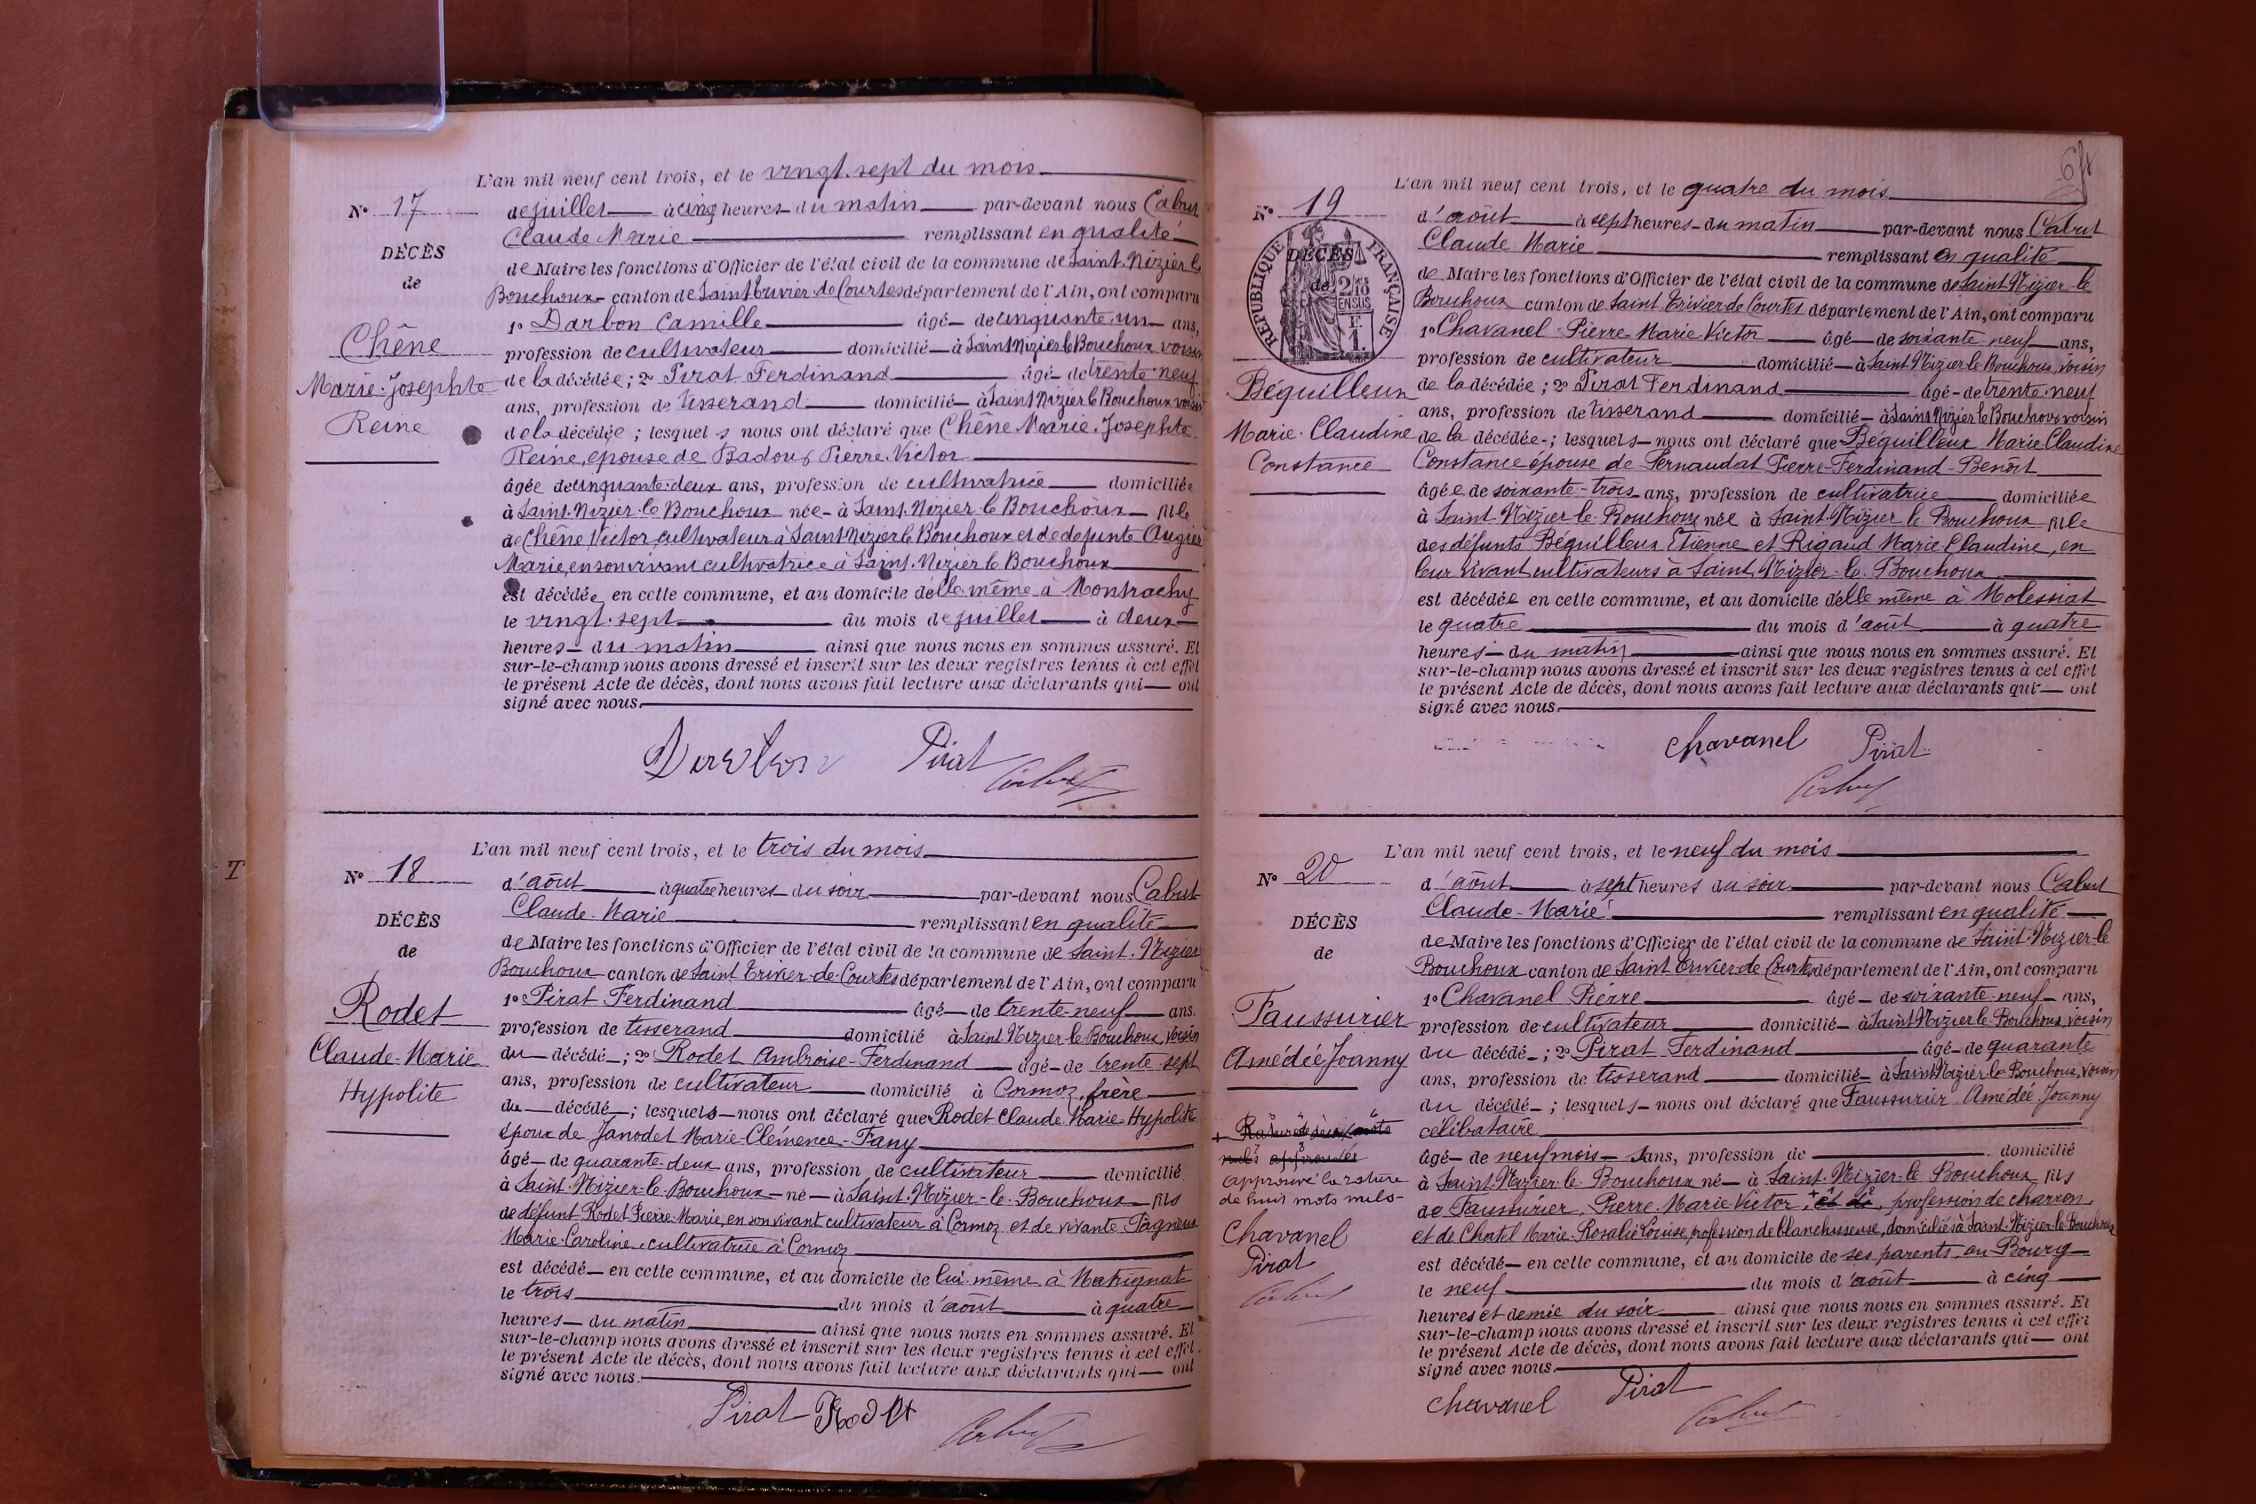 L'an mil neuf cent trois, et le vingt-sept du mois
N° 17
de juillet à cinq heures du matin par-devant nous Cabut
Claude Marie remplissant en qualité
DÉCÈS
de
de Maire les fonctions d'Officier de l'état civil de la commune de Saint-Nizier le
Bouchoux canton de Saint Trivier de Courtes département de l'Ain, ont comparu
1° Darbon Camille âgé de cinquante-un ans,
Chêne
profession de cultivateur domicilié à Saint Nizier le Bouchoux voisin
Marie-Josephte
de la décédée; 2° Pirat Ferdinand âgé de trente-neuf
ans, profession de tisserand domicilié à Saint Nizier le Bouchoux voisin
Reine
de la décédée; lesquels nous ont déclaré que Chêne Marie-Josephte
Reine, épouse de Badoux Pierre Victor
âgée de cinquante-deux ans, profession de cultivatrice domiciliée
à Saint-Nizier-le Bouchoux née à Saint-Nizier le Bouchoux fille
de Chêne Victor, cultivateur à Saint-Nizier le Bouchoux et de defunte Augier
Marie, en son vivant cultivatrice à Saint-Nizier le Bouchoux
est décédée en cette commune, et au domicile d'elle même à Montrachy
le vingt-sept du mois de juillet à deux
heures du matin ainsi que nous nous en sommes assuré. Et
sur-le-champ nous avons dressé et inscrit sur les deux registres tenus à cet effet
le présent Acte de décès, dont nous avons fait lecture aux déclarants qui ont
signé avec nous.
Darbon Pirat Cabut
L'an mil neuf cent trois, et le trois du mois
N° 18
d'août à quatre heures du soir par-devant nous Cabut
Claude-Marie remplissant en qualité
DÉCÈS
de
de Maire les fonctions d'Officier de l'état civil de la commune de Saint-Nizier
Bouchoux canton de Saint Trivier-de-Courtes département de l'Ain, ont comparu
1° Pirat Ferdinand âgé de trente-neuf ans.
Rodet
profession de tisserand domicilié à Saint Nizier-le-Bouchoux, voisin
Claude-Marie
du décédé; 2° Rodet Ambroise-Ferdinand âgé de trente-sept
Hypolite
ans, profession de cultivateur domicilié à Cormoz, frère
du décédé; lesquels nous ont déclaré que Rodet Claude Marie-Hypolite
époux de Janodet Marie-Clémence-Fany
âgé de quarante-deux ans, profession de cultivateur domicilié
à Saint-Nizier-le-Bouchoux né à Saint-Nizier-le-Bouchoux fils
de défunt Rodet Pierre-Marie, en son vivant cultivateur à Cormoz et de vivante Pagneux
Marie-Caroline cultivatrice à Cormoz
est décédé en cette commune, et au domicile de lui-même à Matrignat
le trois du mois d'août à quatre
heures du matin ainsi que nous nous en sommes assuré. Et
sur-le-champ nous avons dressé et inscrit sur les deux registres tenus à cet effet
le présent Acte de décès, dont nous avons fait lecture aux déclarants qui ont
signé avec nous.
Pirat Rodet Cabut
L'an mil neuf cent trois, et le quatre du mois
N° 19
d'août à sept heures du matin par-devant nous Cabut
Claude Marie remplissant en qualité
DÉCÈS
de
RÉPUBLIQUE FRANÇAISE
2/10 EN SUS
F. 1.
de Maire les fonctions d'Officier de l'état civil de la commune de Saint-Nizier-le
Bouchoux canton de Saint Trivier de Courtes département de l'Ain, ont comparu
1° Chavanel Pierre Marie Victor âgé de soixante-neuf ans,
profession de cultivateur domicilié à Saint-Nizier le Bouchoux, voisin
Béquilleux
de la décédée; 2° Pirat Ferdinand âgé de trente-neuf
ans, profession de tisserand domicilié à Saint Nizier le Bouchoux voisin
Marie-Claudine
de la décédée; lesquels nous ont déclaré que Béquilleux Marie Claudine
Constance
Constance épouse de Pernaudat Pierre-Ferdinand-Benoît
âgée de soixante-trois ans, profession de cultivatrice domiciliée
à Saint-Nizier-le-Bouchoux née à Saint-Nizier le Bouchoux fille
des défunts Béquilleux Etienne et Rigaud Marie Claudine, en
leur vivant cultivateurs à Saint-Nizier-le-Bouchoux
est décédée en cette commune, et au domicile d'elle même à Molessiat
le quatre du mois d'août à quatre
heures du matin ainsi que nous nous en sommes assuré. Et
sur-le-champ nous avons dressé et inscrit sur les deux registres tenus à cet effet
le présent Acte de décès, dont nous avons fait lecture aux déclarants qui ont
signé avec nous.
Chavanel Pirat
Cabut
L'an mil neuf cent trois, et le neuf du mois
N° 20
d'août à sept heures du soir par-devant nous Cabut
Claude-Marie remplissant en qualité
DÉCÈS
de
de Maire les fonctions d'Officier de l'état civil de la commune de Saint-Nizier-le
Bouchoux canton de Saint Trivier de Courtes département de l'Ain, ont comparu
1° Chavanel Pierre âgé de soixante-neuf ans,
Faussurier
profession de cultivateur domicilié à Saint Nizier le Bouchoux, voisin
Amédée Joanny
du décédé; 2° Pirat Ferdinand âgé de quarante
ans, profession de tisserand domicilié à Saint Nizier-le Bouchoux, voisin
du décédé; lesquels nous ont déclaré que Faussurier Amédée Joanny
célibataire
+ Rature de deux mots
nuls approuvée
approuvé la rature
de huit mots nuls
Chavanel
Pirat
Cabut
âgé de neuf mois ans, profession de domicilié
à Saint-Nizier-le-Bouchoux né à Saint-Nizier-le Bouchoux fils
de Faussurier Pierre Marie Victor, + et de, profession de charron,
et de Chatel Marie-Rosalie Louise, profession de blanchisseuse, domiciliés à Saint-Nizier-le-Bouchoux
est décédé en cette commune, et au domicile de ses parents au Bourg
le neuf du mois d'août à cinq
heures et demie du soir ainsi que nous nous en sommes assuré. Et
sur-le-champ nous avons dressé et inscrit sur les deux registres tenus à cet effet
le présent Acte de décès, dont nous avons fait lecture aux déclarants qui ont
signé avec nous
Chavanel Pirat Cabut
T